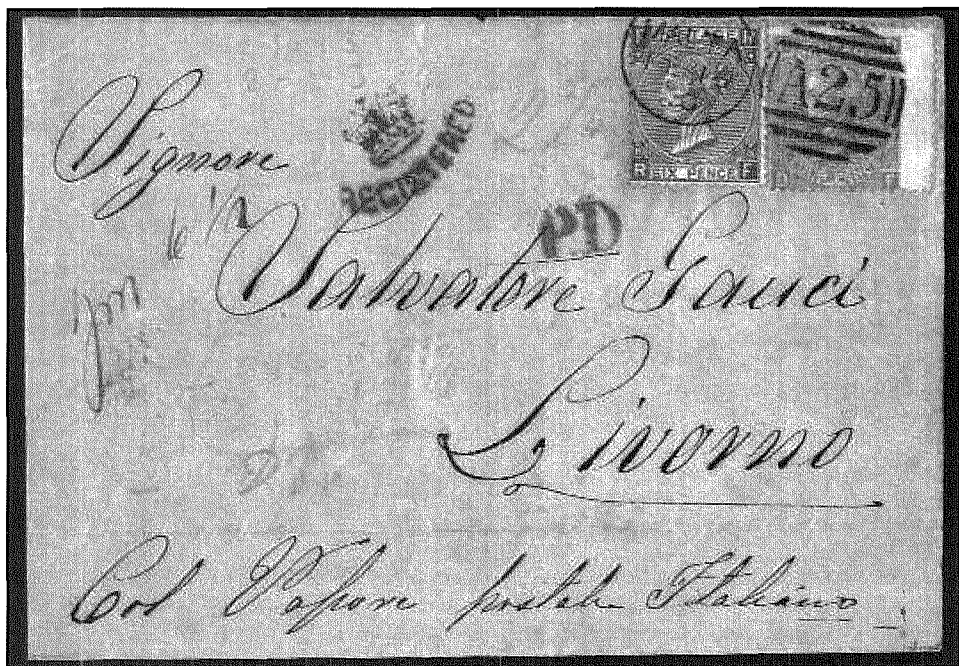 A25
SIX PENCE
REGISTERED
Signore
PD
6 1/2
Salvatore Gauci
Livorno
Col Vapore postale Italiano